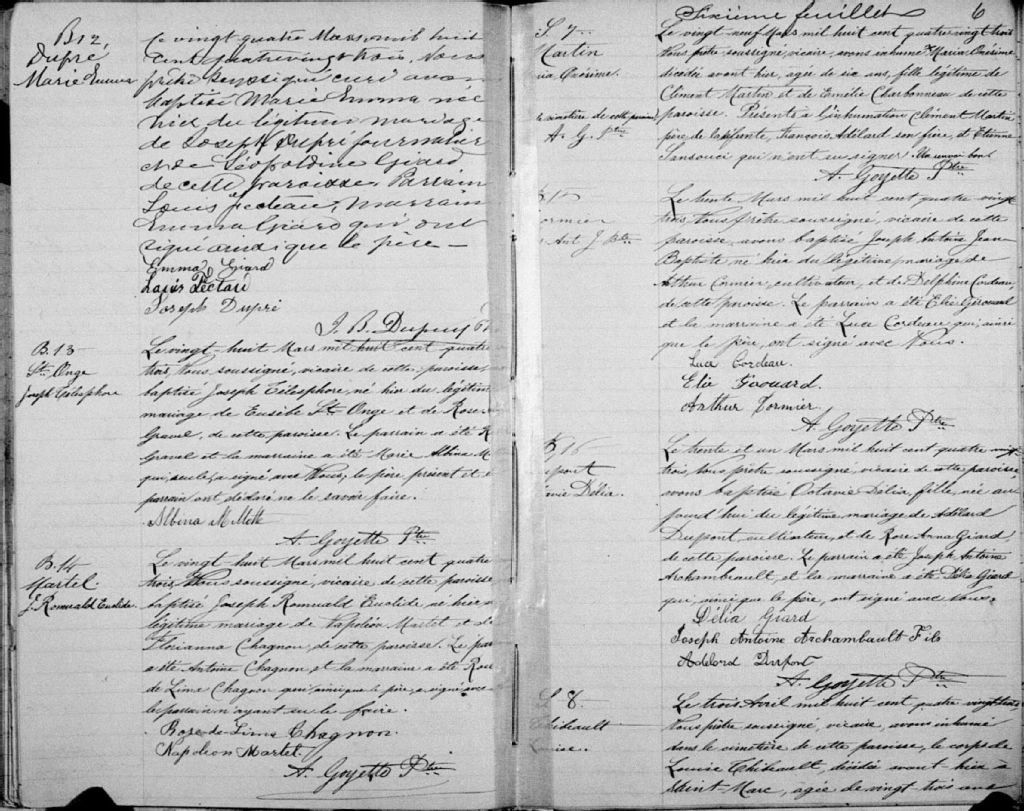 B 12,
Dupré
Marie Emma
Ce vingt quatre Mars, mil huit
cent quatre vingt trois, Nous
prêtre soussigné curé avons
baptisé Marie Emma née
hier du légitime mariage
de Joseph Dupré journalier
et de Léopoldine Girard
de cette paroisse. Parrain
Louis Fecteau, Marraine
Emma Girard qui ont
signé ainsi que le père —
Emma Girard
Louis Fecteau
Joseph Dupré
J. B. Dupuy
B. 13
St. Onge
Joseph Télesphore
Le vingt-huit Mars mil huit cent quatre
trois, Nous soussigné, vicaire de cette paroisse,
baptisé Joseph Télesphore, né hier du légitime
mariage de Eusèbe St. Onge et de Rose
Gravel, de cette paroisse. Le parrain a été
Gravel et la marraine a été Marie Albina M
qui, seule, a signé avec Nous, le père présent et
parrain ont déclaré ne le savoir faire.
Albina M
A. Goyette Ptre
B. 14
Martel.
J. Romuald Euclide.
Le vingt huit Mars mil huit cent quatre
trois, Nous soussigné, vicaire de cette paroisse
baptisé Joseph Romuald Euclide né hier
légitime mariage de Napoléon Martel et d
Florianna Chagnon, de cette paroisse. Le par
a été Antoine Chagnon et la marraine a été Rose
de Lima Chagnon qui ainsi que le père, a signé avec
le parrain n'ayant su le faire.
Rose-de-Lima Chagnon.
Napoléon Martel.
A. Goyette Ptre
Sixième feuillet 6
S 7
Martin
ia Onésime.
cimetière de cette paroisse
A. G. Ptre
Le vingt neuf Mars mil huit cent quatre vingt trois
Nous prêtre soussigné, vicaire, avons inhumé Maria Onésime
décédée avant hier, agée de six ans, fille légitime de
Clément Martin et de Emélie Charbonneau de cette
paroisse. Présents à l'inhumation Clément Martin
père de la défunte, François Adélard son frère, et Etienne
Sansouci qui n'ont su signer.
A. Goyette Ptre
B 15
ormier
Ant J Bte
Le trente Mars mil huit cent quatre vingt
trois, Nous prêtre soussigné, vicaire de cette
paroisse, avons baptisé Joseph Antoine Jean-
Baptiste né hier du légitime mariage de
Arthur Cormier, cultivateur, et de Delphine Cordeau,
de cette paroisse. Le parrain a été Elie Girouard
et la marraine a été Luca Cordeau qui, ainsi
que le père, ont signé avec Nous.
Luca Cordeau.
Elie Girouard.
Arthur Cormier.
A. Goyette Ptre
B 16
upont
avie Délia.
Le trente et un Mars mil huit cent quatre vingt
trois, Nous prêtre soussigné vicaire de cette paroisse
avons baptisé Octavie Délia, fille, née au-
jourd'hui du légitime mariage de Adélard
Dupont cultivateur, et de Rose Anna Giard
de cette paroisse. Le parrain a été Joseph Antoine
Archambault, et la marraine a été Délia Giard
qui, ainsi que le père, ont signé avec Nous.
Délia Giard
Joseph Antoine Archambault Fils
Adélard Dupont
A. Goyette Ptre
S. 8.
Thibault
Louise.
Le trois Avril mil huit cent quatre vingt trois
Nous prêtre soussigné, vicaire, avons inhumé
dans le cimetière de cette paroisse, le corps de
Louise Thibault, décédée avant hier à
Saint-Marc, agée de vingt trois ans